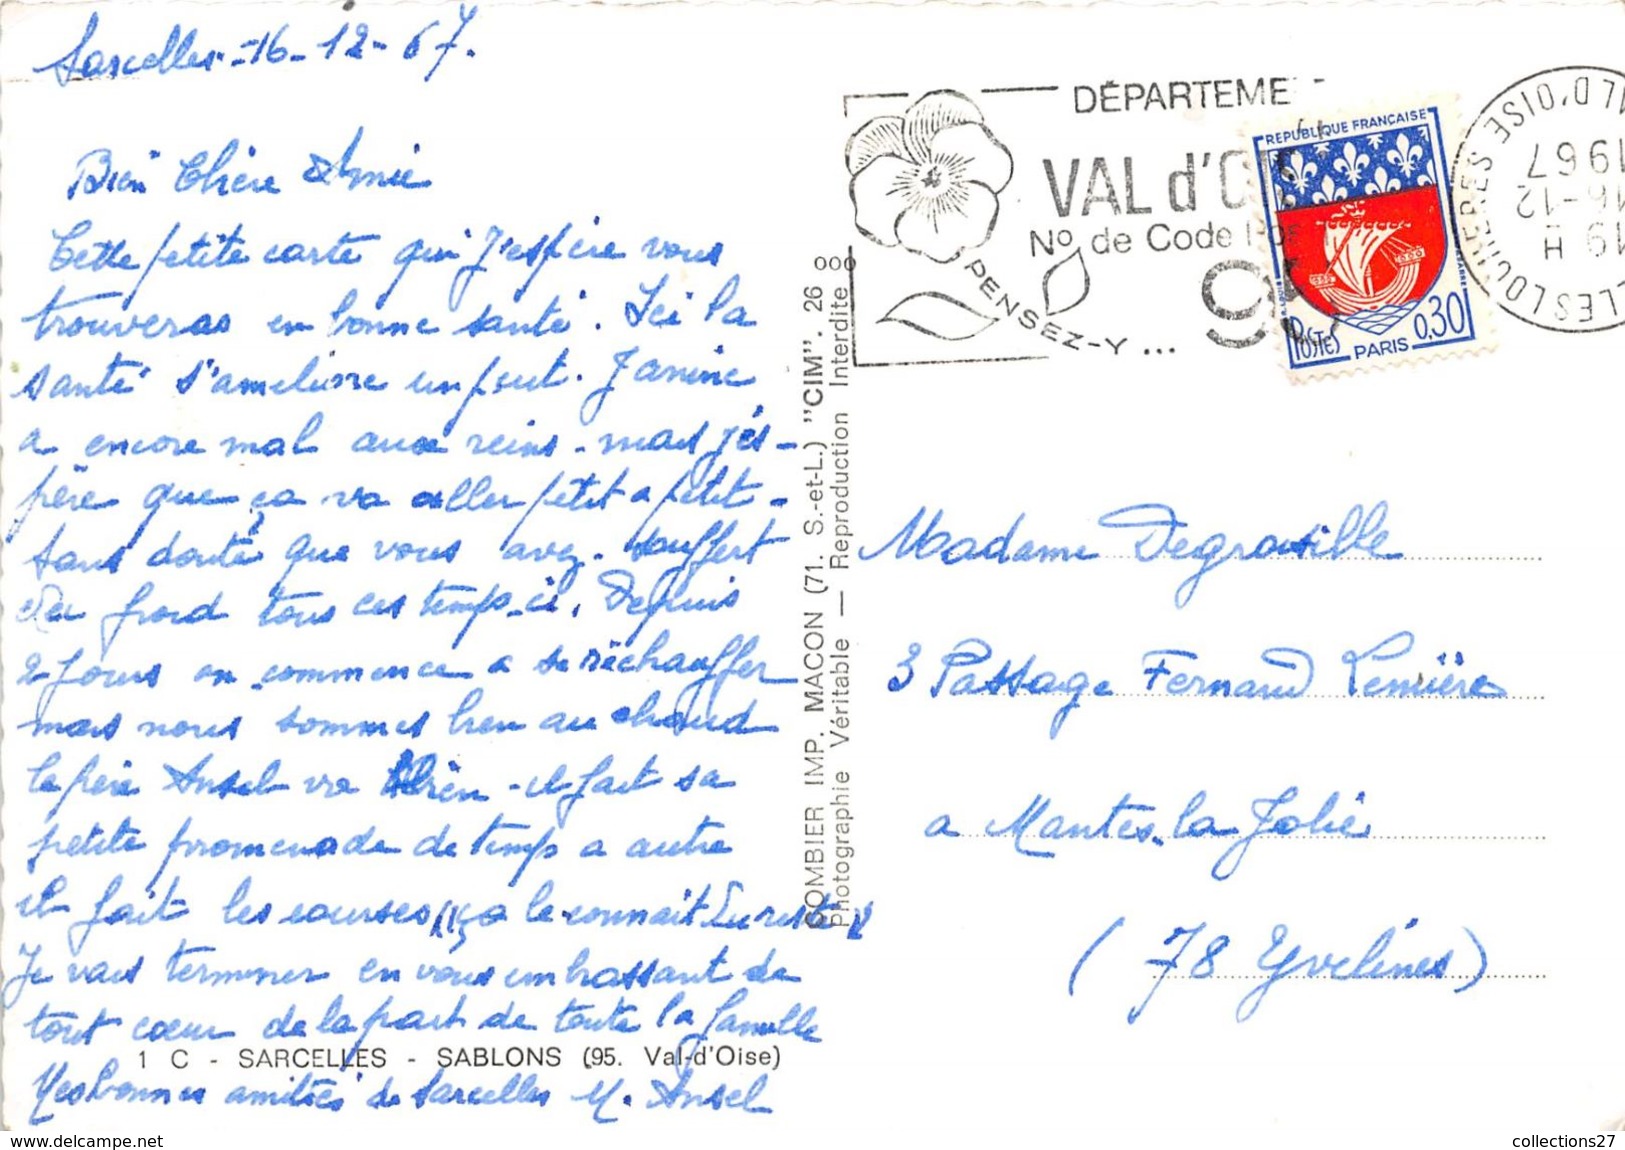 Sarcelles - 16 - 12 - 67.
Bien Chère Amie
Cette petite carte qui J'espère vous
trouveras en bonne santé. Ici la
santé s'ameliore un peut. Janine
a encore mal aux reins - mais j'és-
père que ça va aller petit a petit -
sans doute que vous avez souffert
du froid tous ces temps-ci. Depuis
2 jours on commence a se réchauffer
mais nous sommes bien au chaud
le père Ansel va bien - il fait sa
petite promenade de temps a autre
il fait les courses, ça le connait
Je vais terminer en vous embrassant de
tout cœur de la part de toute la famille
Mes bonnes amitiés de Sarcelles M. Ansel
1 C - SARCELLES - SABLONS (95. Val-d'Oise)
COMBIER IMP. MACON (71. S.-et-L.) "CIM". 26
Photographie Véritable — Reproduction Interdite
DÉPARTEME
VAL d'O
N° de Code
9
PENSEZ-Y ...
REPUBLIQUE FRANÇAISE
POSTES PARIS 0,30
LLES LOCHERES VAL D'OISE
19 H
16-12
1967
Madame Degrosille
3 Passage Fernand Lemière
a Mantes-la Jolie
(78 Yvelines)
www.delcampe.net
collections27